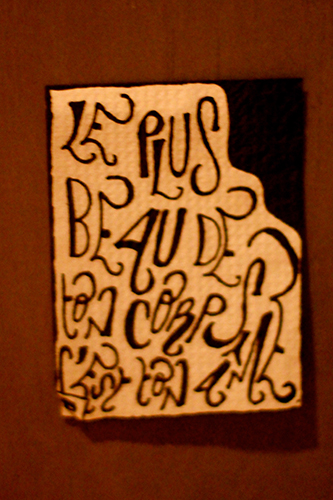 LE PLUS
BEAU DE
TON CORPS
C'EST TON AME